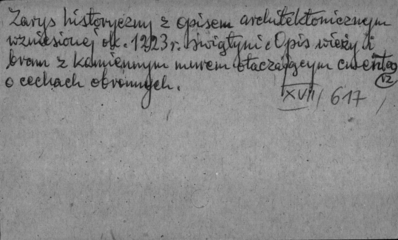 Zarys historyczny z opisem architektonicznym
wzniesionej ok. 1223 r. świątyni. Opis wieży i
bram z kamiennym murem otaczającym cmentarz
o cechach obronnych.
12
XVII/617